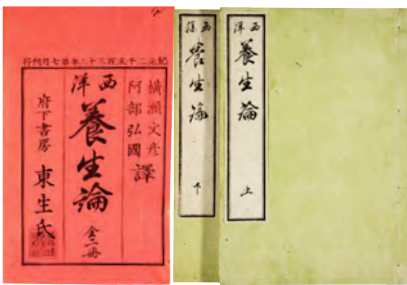 紀元二千五百三十三年第七月刊行
横瀬文彦
阿部弘國
譯
西洋
養生論
全二冊
府下書房
東生氏
西洋
養生論
上
西洋
養生論
下